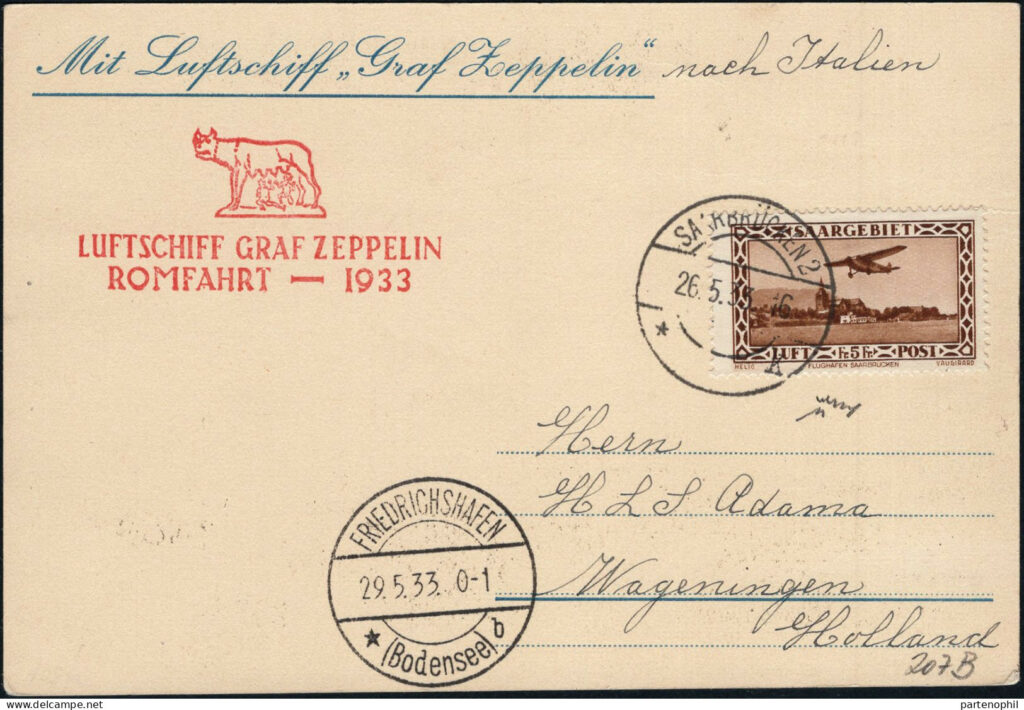 Mit Luftschiff „Graf Zeppelin“ nach Italien
LUFTSCHIFF GRAF ZEPPELIN
ROMFAHRT — 1933
SAARBRÜCKEN 2
26.5.33. 16
* k
SAARGEBIET
LUFT Fr. 5 Fr. POST
HELIO FLUGHAFEN SAARBRÜCKEN VAUGIRARD
Herrn
H L S Adama
Wageningen
Holland
207B
FRIEDRICHSHAFEN
29.5.33. 0-1
* (Bodensee) b
partenophil